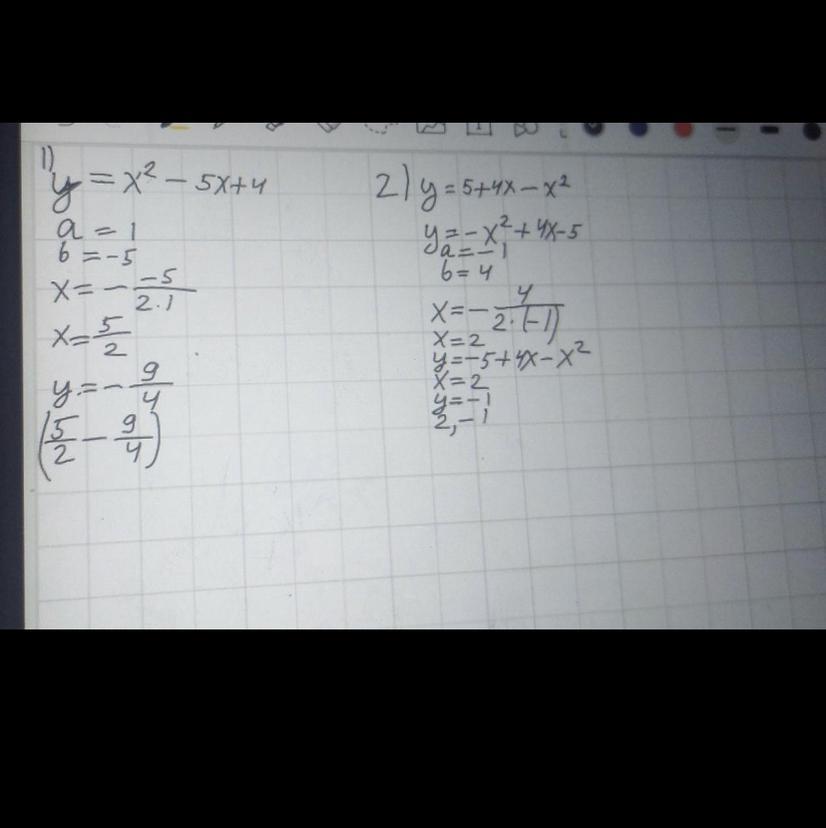 1)
y = x² - 5x+4
a = 1
b = -5
x = - -5/2·1
x = 5/2
y = - 9/4
(5/2 - 9/4)
2) y = 5+4x-x²
y = -x²+4x-5
a = -1
b = 4
x = - 4/2·(-1)
x = 2
y = -5+4x-x²
x = 2
y = -1
2, -1